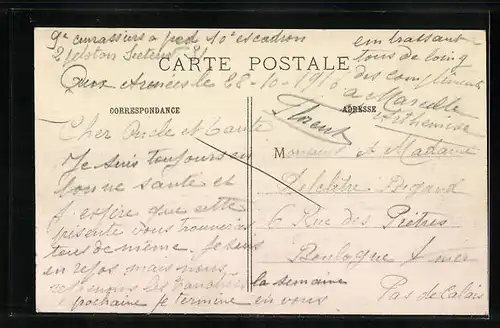 9e cuirassiers à pied 10e escadron
2 peloton Secteur
CARTE POSTALE
Aux Armées le 28-10-1916
CORRESPONDANCE
Cher Oncle et Tante
Je suis toujours en
bonne santé et
j'espère que cette
présente vous trouveras
tous de même. Je suis
en repos mais nous
reprenons les tranchées
la semaine
prochaine je termine en vous
embrassant
tous de loing
des compliments
à Marcelle
Arthémise
Florent
ADRESSE
Monsieur et Madame
Delclêtre Digard
6 Rue des Piètres
Boulogne s mer
Pas de Calais